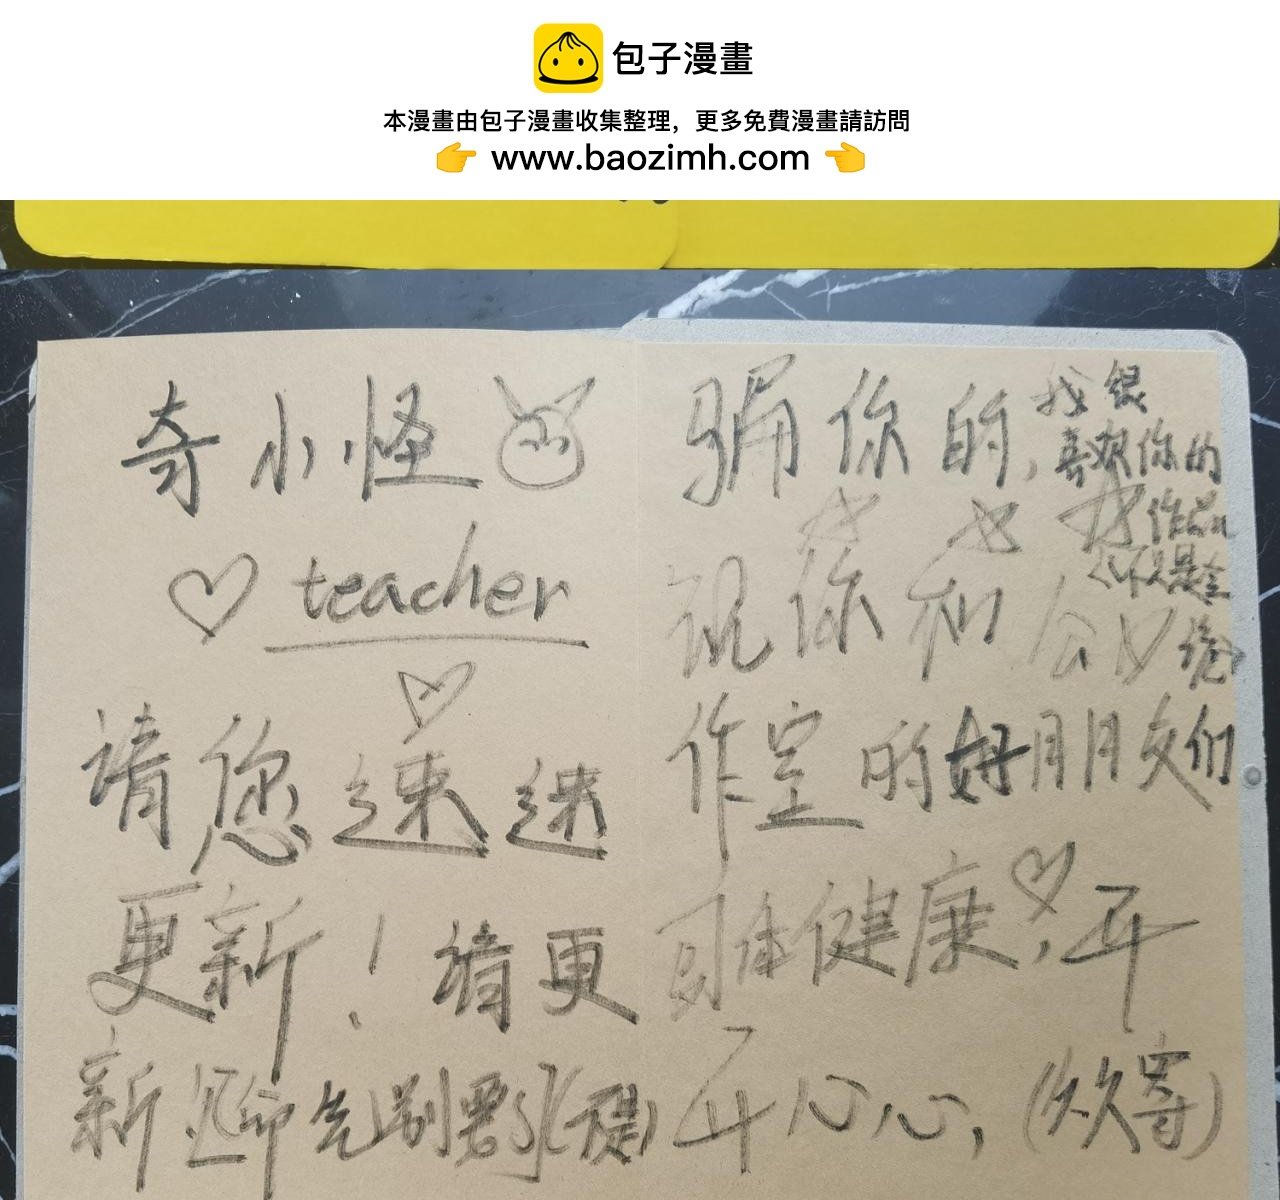 包子漫畫
本漫畫由包子漫畫收集整理，更多免費漫畫請訪問
www.baozimh.com
奇小怪
teacher
请您速速
更新！请更
新
骗你的，我很
喜欢你的
作品
祝你和
作室的好朋友们
身体健康，开
开心心，